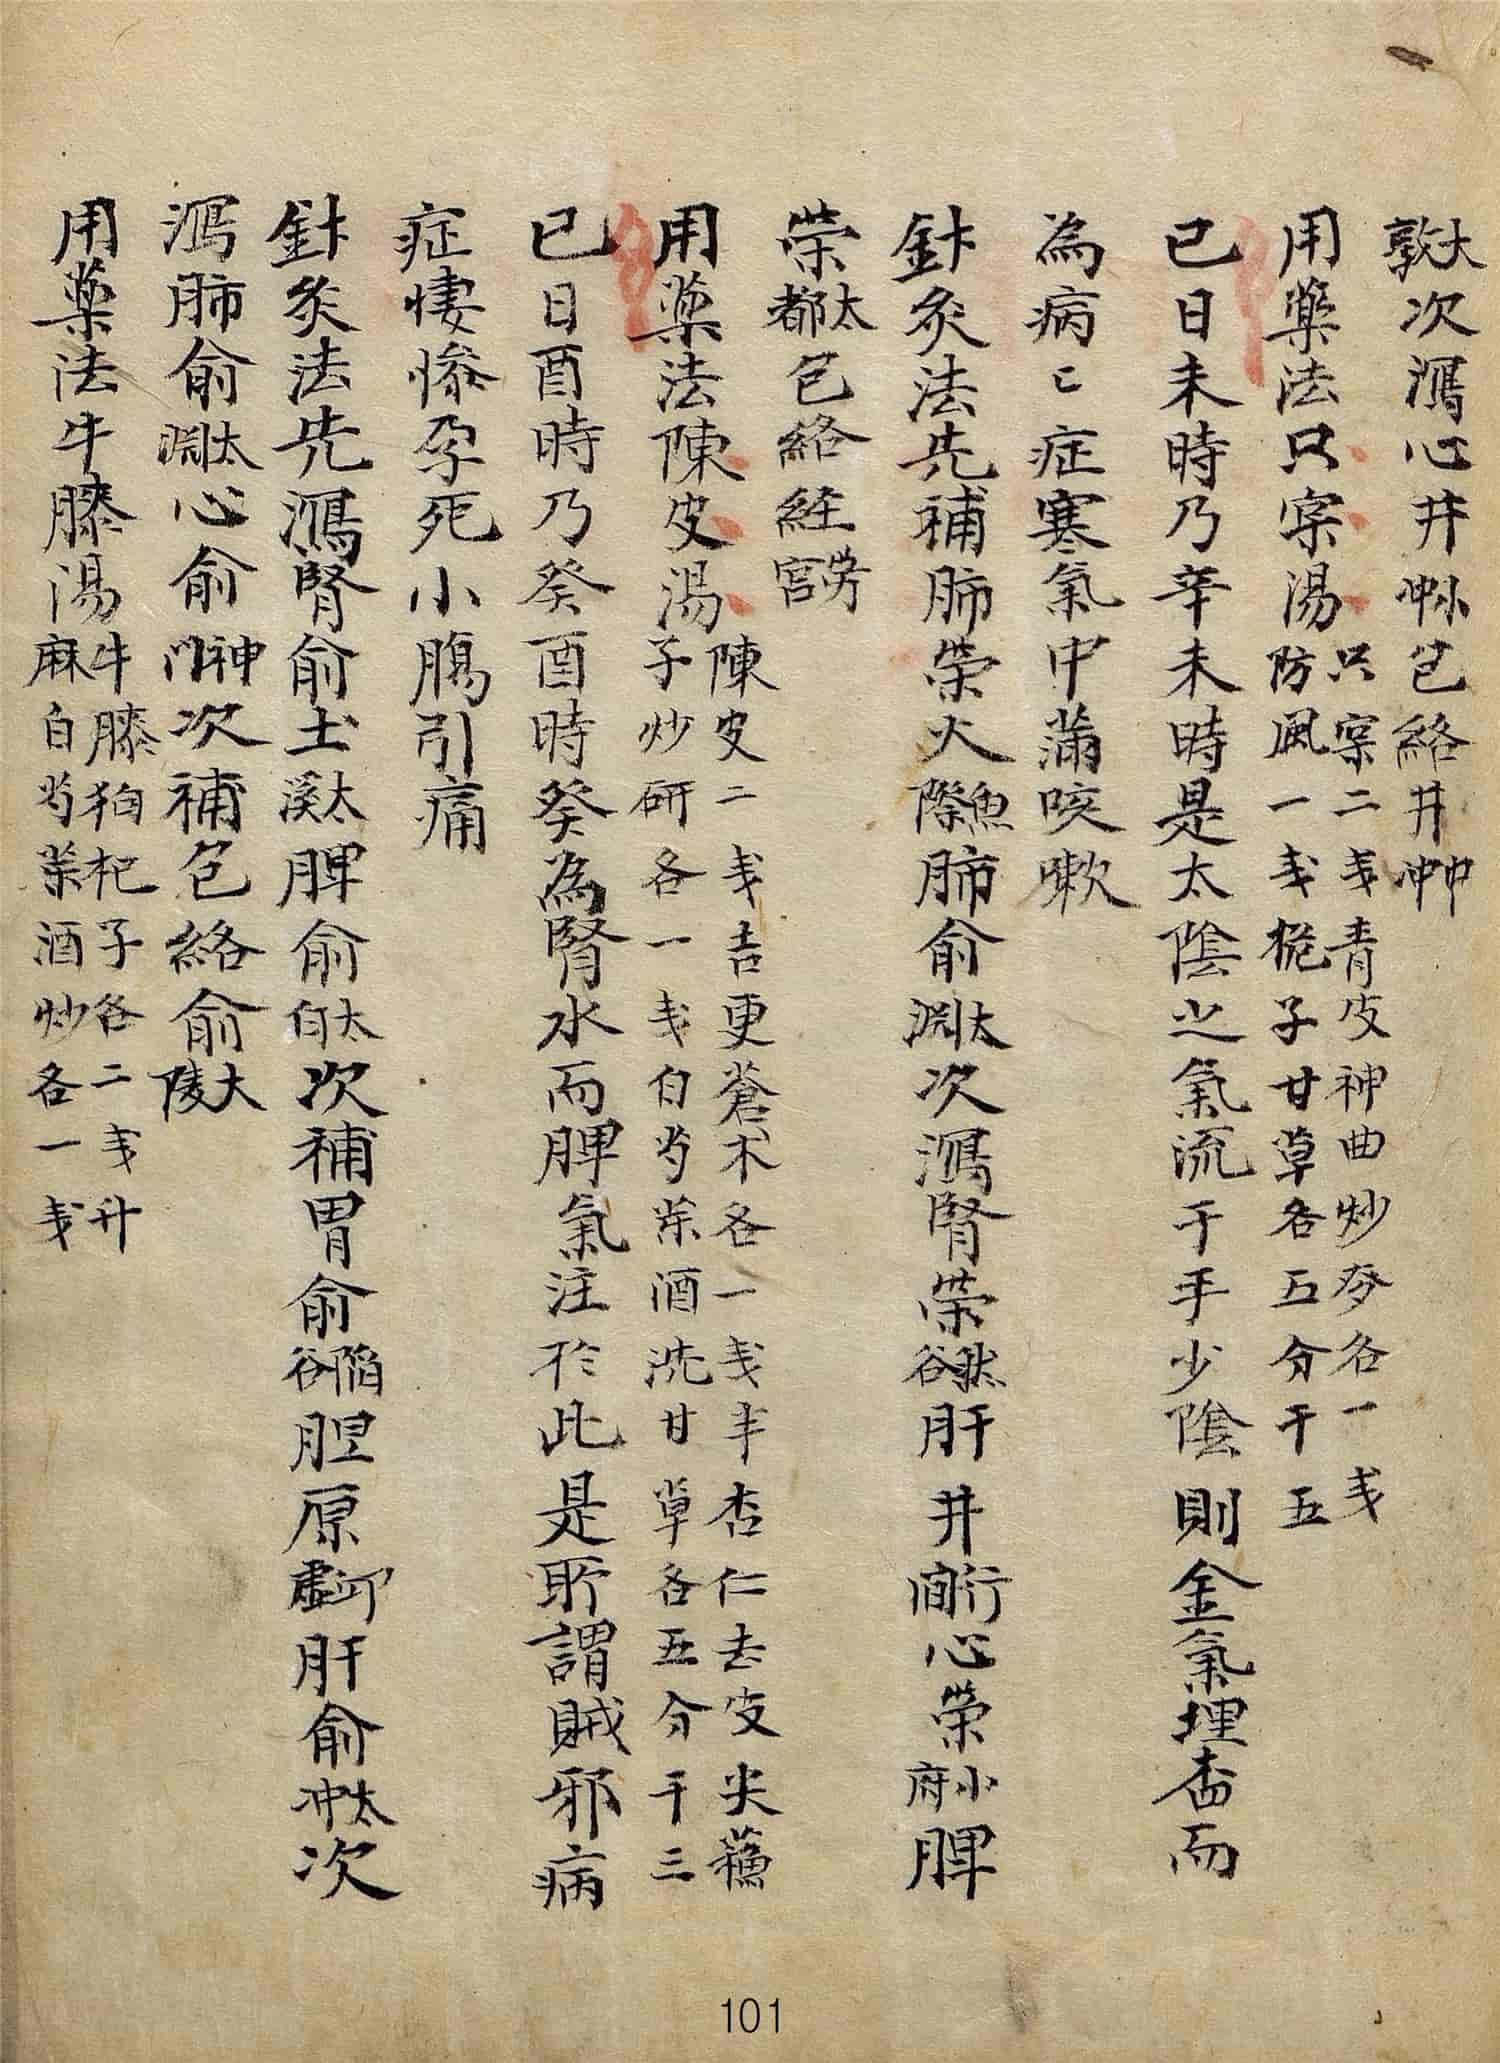 大敦次瀉心井少冲包絡井中冲
用藥法只宲湯只宲二戋青皮神曲炒各一戋
防風一戋梔子甘草各五分干五
已日未時乃辛未時是太陰之氣流于手少陰則金氣埋杳而
為病〻症寒氣中滿咳嗽
針灸法先補肺荣火魚際肺俞太淵次瀉腎荣然谷肝井行間心荣小府脾
荣太都包絡経劳宮
用藥法陳皮湯陳皮二戋吉更蒼术各一戋半杏仁去皮尖蘓
子炒研各一戋白芍薬酒洗甘草各五分干三
已日酉時乃癸酉時癸為腎水而脾氣注於此是所謂賊邪病
症悽惨孕死小腸引痛
針灸法先瀉腎俞土太溪脾俞太白次補胃俞陷谷胆原丘虛肝俞太冲次
瀉肺俞太淵心俞神门次補包絡俞大陵
用藥法牛膝湯牛膝狗杞子各二戋升
麻白芍薬酒炒各一戋
101